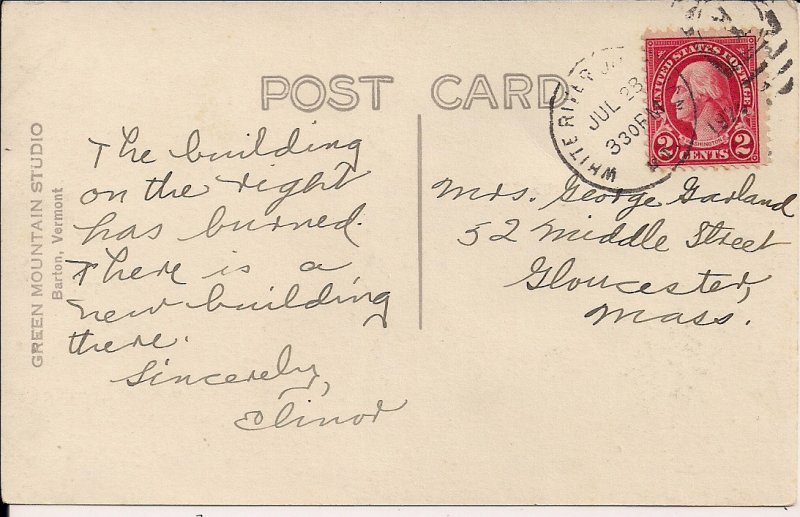 POST CARD
GREEN MOUNTAIN STUDIO
Barton, Vermont
The building
on the right
has burned.
There is a
new building
there.
Sincerely,
Elinor
WHITE RIVER
JUL 28
330PM
UNITED STATES POSTAGE
WASHINGTON
2 CENTS 2
Mrs. George Garland
52 Middle Street
Gloucester,
Mass.